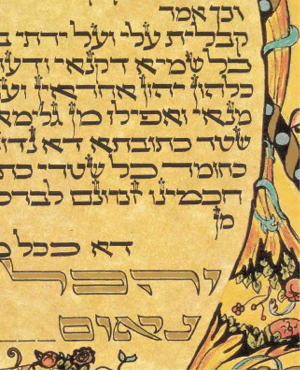 וכן אמר
קבלית עלי ועל ירתי ב
כל שמיא דקנאי
כלהון יהון אחראין
מנאי ואפילו מן גלימא
שטר כתובתא דא
כחומר כל שטרי
חכמינו זכרונם
מן
דא בכל
והכל
נאום